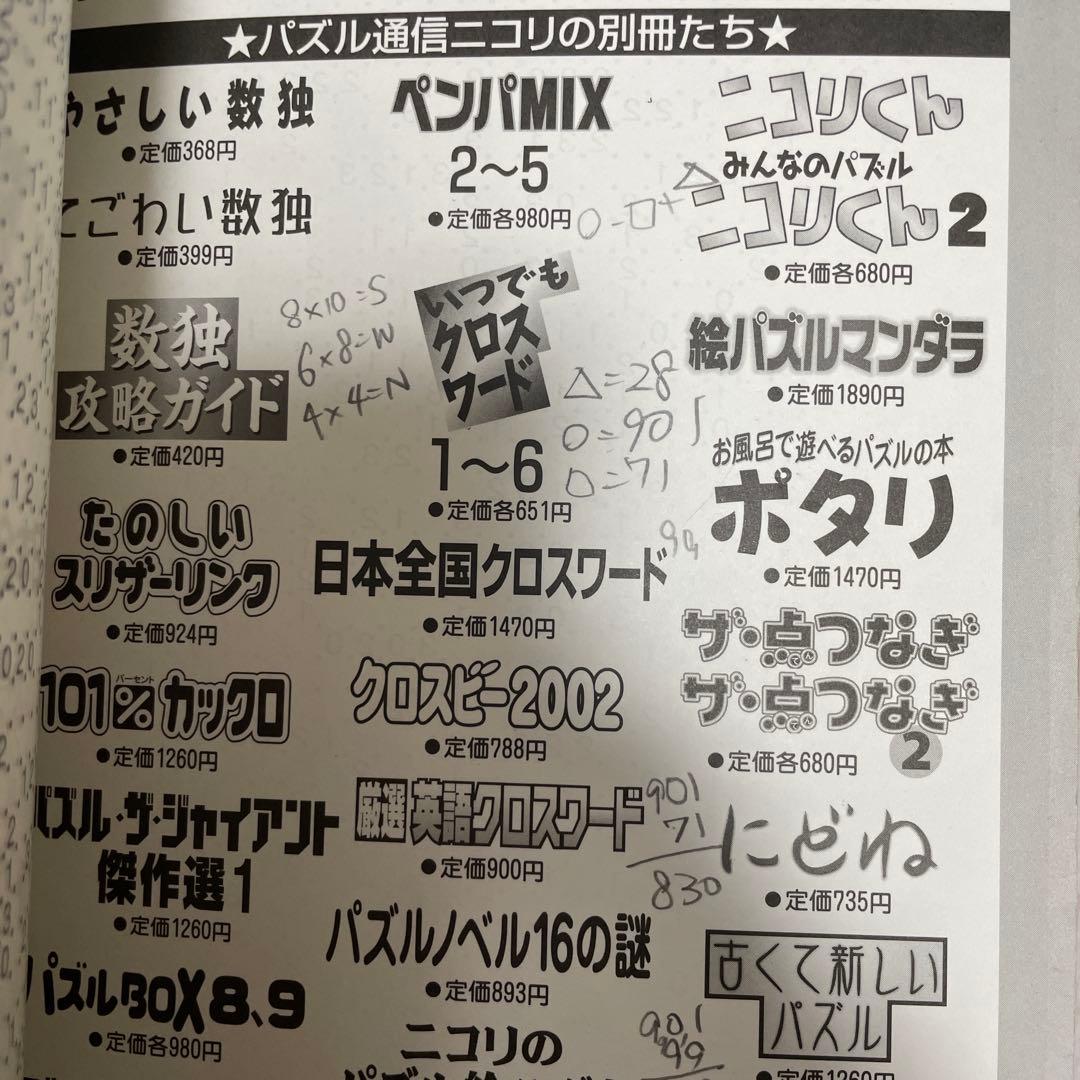 ★パズル通信ニコリの別冊たち★
やさしい数独
●定価368円
てごわい数独
●定価399円
数独
攻略ガイド
●定価420円
たのしい
スリザーリンク
●定価924円
パーセント
101%カックロ
●定価1260円
パズル・ザ・ジャイアント
傑作選1
●定価1260円
パズルBOX8、9
●定価各980円
8×10=S
6×8=W
4×4=N
ペンパMIX
2〜5
●定価各980円
いつでも
クロス
ワード
1〜6
●定価各651円
日本全国クロスワード
●定価1470円
クロスビー2002
●定価788円
厳選英語クロスワード
●定価900円
パズルノベル16の謎
●定価893円
ニコリの
○-□+△
△=28
○=901
□=71
90
901
71
830
901
99
ニコリくん
みんなのパズル
ニコリくん2
●定価各680円
絵パズルマンダラ
●定価1890円
お風呂で遊べるパズルの本
ポタリ
●定価1470円
ザ・点つなぎ
ザ・点つなぎ
2
●定価各680円
にどね
●定価735円
古くて新しい
パズル
●定価1260円